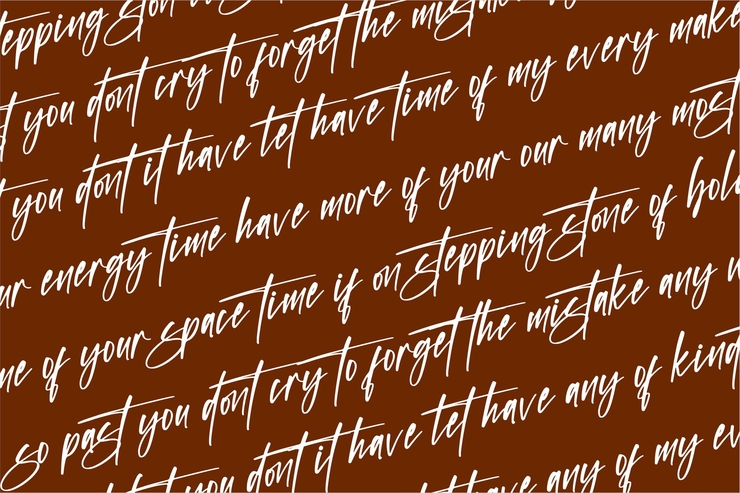 epping
t you dont cry to forget the
t you dont it have tet have time of my every make
ur energy time have more of your our many most
me of your space time if on stepping stone of bold
so past you dont cry to forget the mistake any
you dont it have tet have any of kind
have any of my ev